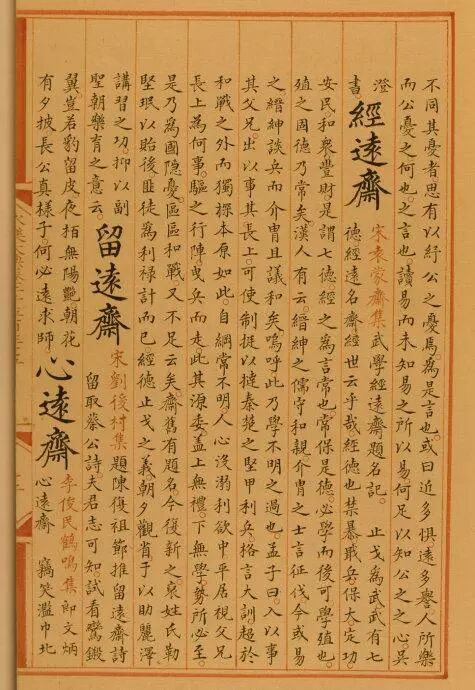 不同其憂者思有以紓公之憂焉爲是言也或曰近多懼遠多譽人所樂
而公憂之何也之言也讀易而未知易之所以易何足以知公之之心吳
澄
書
經遠齋
宋袁蒙齋集武學經遠齋題名記 止戈爲武武有七
德經遠名齋經世云乎哉經德也禁暴戢兵保大定功
安民和衆豐財是謂七德經之爲言常也常保是德必學而後可學殖也
殖之固德乃常矣漢人有云有縉紳之儒守和親介胄之士言征伐今或易
之縉紳談兵而介胄且議和矣嗚呼此乃學不明之過也孟子曰入以事
其父兄出以事其長上可使制挺以撻秦楚之堅甲利兵格言大訓超於
和戰之外而獨探本原如此自綱常不明人心没溺利欲中平居視父兄
長上爲何事驅之行陣曳兵而走此其源委蓋上無禮下無學勢所必至
是乃爲國隱憂區區和戰又不足云矣齋舊有題名今復新之裒姓氏勒
堅珉以貽後匪徒爲利祿計而已經德止戈之義朝夕觀省于以助麗澤
講習之功抑以副
聖朝樂育之意云
留遠齋
宋劉後村集題陳復祖節推留遠齋詩
留取蔡公詩夫君志可知試看鸞鍛
翼豈若豹留皮夜柏無陽艷朝花
有夕披長公真樣子何必遠求師
心遠齋
李俊民鶴鳴集郎文炳
心遠齋 竊笑濫巾北